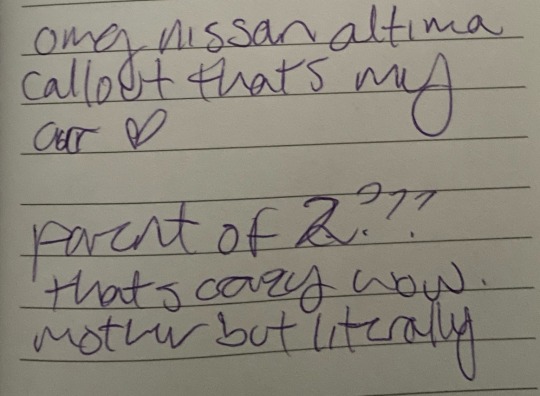 omg nissan altima
callout thats my
car ♡
parent of 2???
thats cazy wow.
mother but literally